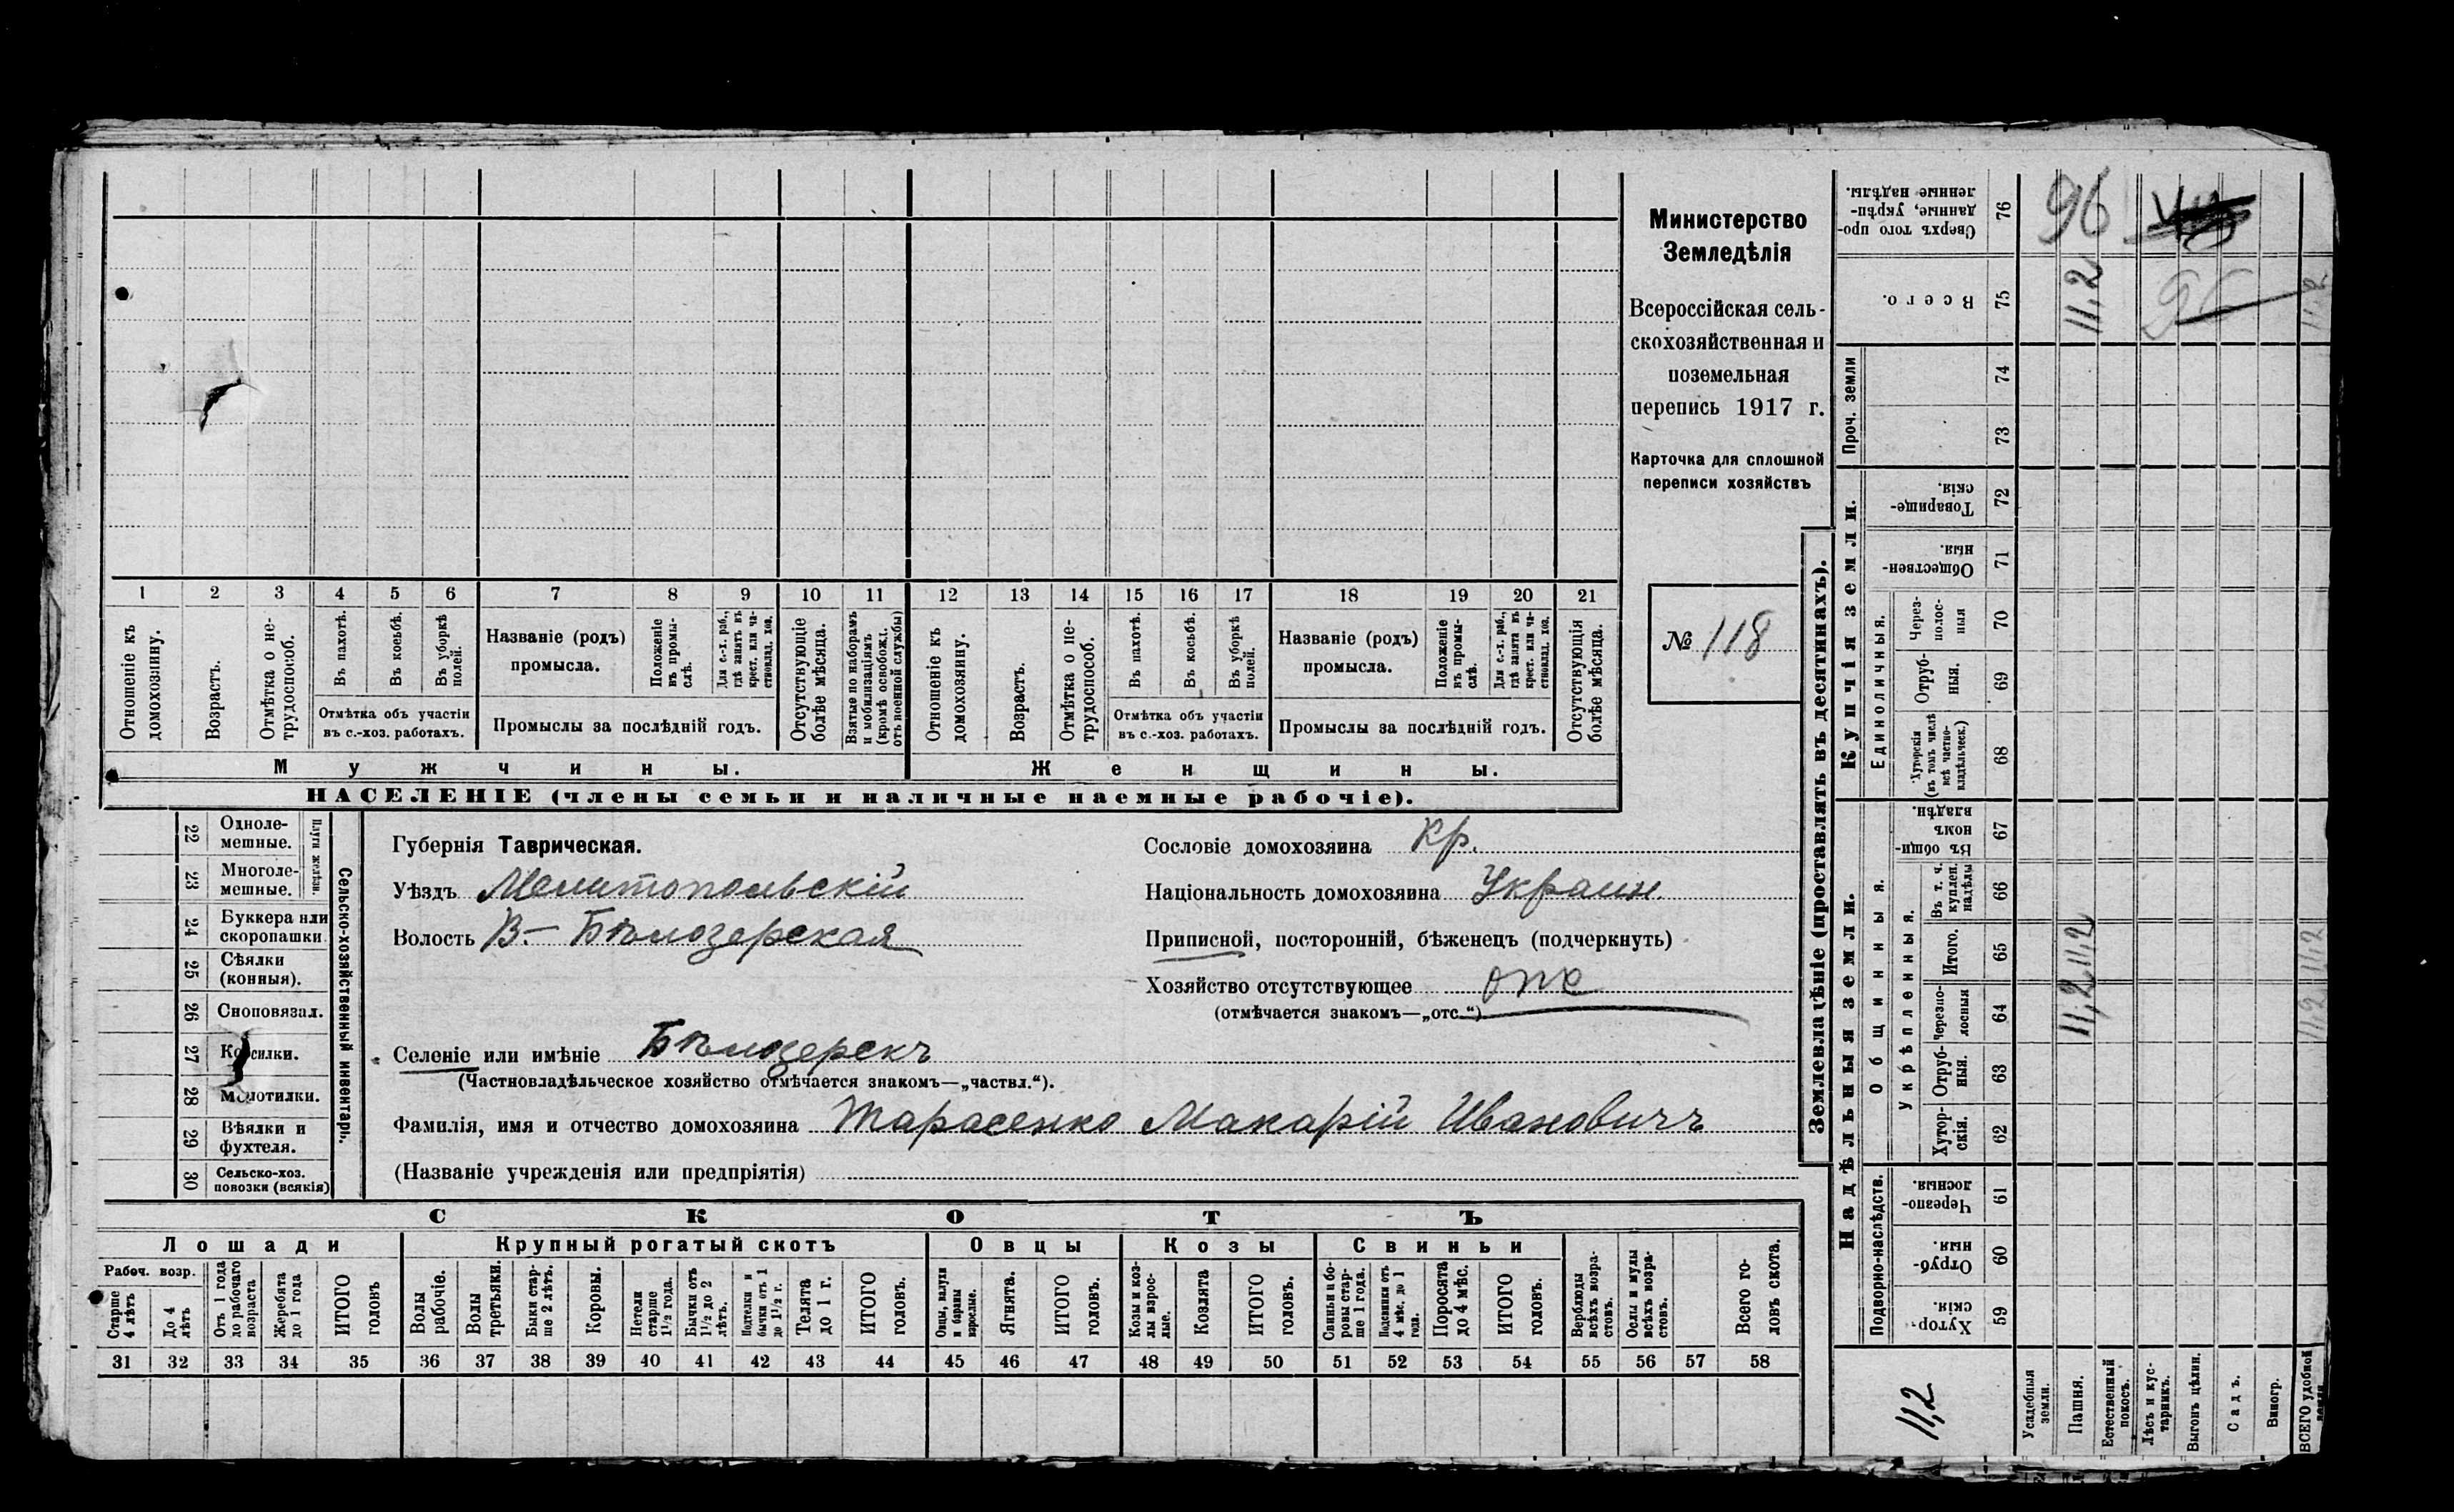 Министерство
Земледѣлія
Всероссійская сель-
скохозяйственная и
поземельная
перепись 1917 г.
Карточка для сплошной
переписи хозяйствъ
№ 118
1 2 3 4 5 6 7 8 9 10 11 12 13 14 15 16 17 18 19 20 21
Отношеніе къ домохозяину.
Возрастъ.
Отмѣтка о не-трудоспособ.
Въ пахотѣ.
Въ косьбѣ.
Въ уборкѣ полей.
Отмѣтка объ участіи
въ с.-хоз. работахъ.
Названіе (родъ)
промысла.
Положеніе въ промы-слѣ.
Для с.-х. раб., гдѣ занятъ въ крест. или ча-стновлад. хоз.
Промыслы за послѣдній годъ.
Отсутствующіе болѣе мѣсяца.
Взятые по наборамъ и мобилизаціямъ (кромѣ освобожд. отъ военной службы)
Отношеніе къ домохозяину.
Возрастъ.
Отмѣтка о не-трудоспособ.
Въ пахотѣ.
Въ косьбѣ.
Въ уборкѣ полей.
Отмѣтка объ участіи
въ с.-хоз. работахъ.
Названіе (родъ)
промысла.
Положеніе въ промы-слѣ.
Для с.-х. раб., гдѣ занята въ крест. или ча-стновлад. хоз.
Промыслы за послѣдній годъ.
Отсутствующія болѣе мѣсяца.
Мужчины.
Женщины.
НАСЕЛЕНІЕ (члены семьи и наличные наемные рабочіе).
Сельско-хозяйственный инвентарь.
Плуги желѣзн.
22 Одноле-мешные.
23 Многоле-мешные.
24 Буккера или скоропашки
25 Сѣялки (конныя).
26 Сноповязал.
27 Косилки.
28 Молотилки.
29 Вѣялки и фухтеля.
30 Сельско-хоз. повозки (всякія)
Губернія Таврическая.
Уѣздъ Мелитопольскій
Волость В.-Бѣлозерская
Сословіе домохозяина Кр.
Національность домохозяина Украин.
Приписной, посторонній, бѣженецъ (подчеркнуть)
Хозяйство отсутствующее отс
(отмѣчается знакомъ—„отс.“)
Селеніе или имѣніе Бѣлозерскъ
(Частновладѣльческое хозяйство отмѣчается знакомъ—„частвл.“).
Фамилія, имя и отчество домохозяина Тарасенко Макарій Ивановичъ
(Названіе учрежденія или предпріятія)
СКОТЪ
Лошади
Крупный рогатый скотъ
Овцы
Козы
Свиньи
Рабоч. возр.
Старше 4 лѣтъ
До 4 лѣтъ
Отъ 1 года до рабочаго возраста
Жеребята до 1 года
ИТОГО головъ
Волы рабочіе.
Волы третьяки.
Быки стар-ше 2 лѣтъ.
Коровы.
Нетели старше 1½ года.
Бычки отъ 1½ до 2 лѣтъ.
Подтелки и бычки отъ 1 до 1½ г.
Телята до 1 г.
ИТОГО головъ.
Овцы, валухи и бараны взрослые.
Ягнята.
ИТОГО головъ.
Козы и коз-лы взрос-лые.
Козлята
ИТОГО головъ.
Свиньи и бо-ровы стар-ше 1 года.
Подсвинки отъ 4 мѣс. до 1 года.
Поросята до 4 мѣс.
ИТОГО головъ.
Верблюды всѣхъ возра-стовъ.
Ослы и мулы всѣхъ возра-стовъ.
Всего го-ловъ скота.
31 32 33 34 35 36 37 38 39 40 41 42 43 44 45 46 47 48 49 50 51 52 53 54 55 56 57 58
Землевладѣніе (проставлять въ десятинахъ).
Надѣльныя земли.
Купчія земли.
Проч. земли
Подворно-наслѣдств.
Общинныя.
Укрѣпленныя.
Единоличныя.
59 Хутор-скія.
60 Отруб-ныя.
61 Черезпо-лосныя.
62 Хутор-скія.
63 Отруб-ныя.
64 Черезпо-лосныя
65 Итого.
66 Въ т. ч. куплен. надѣлы
67 Въ общи-номъ владѣн.
68 Хуторскія (въ томъ числѣ всѣ частно-владѣльческ.)
69 Отруб-ныя.
70 Через-полос-ныя
71 Обществен-ныя.
72 Товарище-скія.
73
74
75 Всего.
76 Сверхъ того про-данные, укрѣп-ленные надѣлы.
11,2
Усадебныя земли.
Пашня.
11,2 11,2
11,2
96
Естественный покосъ.
Лѣсъ и кус-тарникъ.
Выгонъ цѣлин.
Садъ.
Виногр.
ВСЕГО удобной земли
11,2 11,2
11,2
96